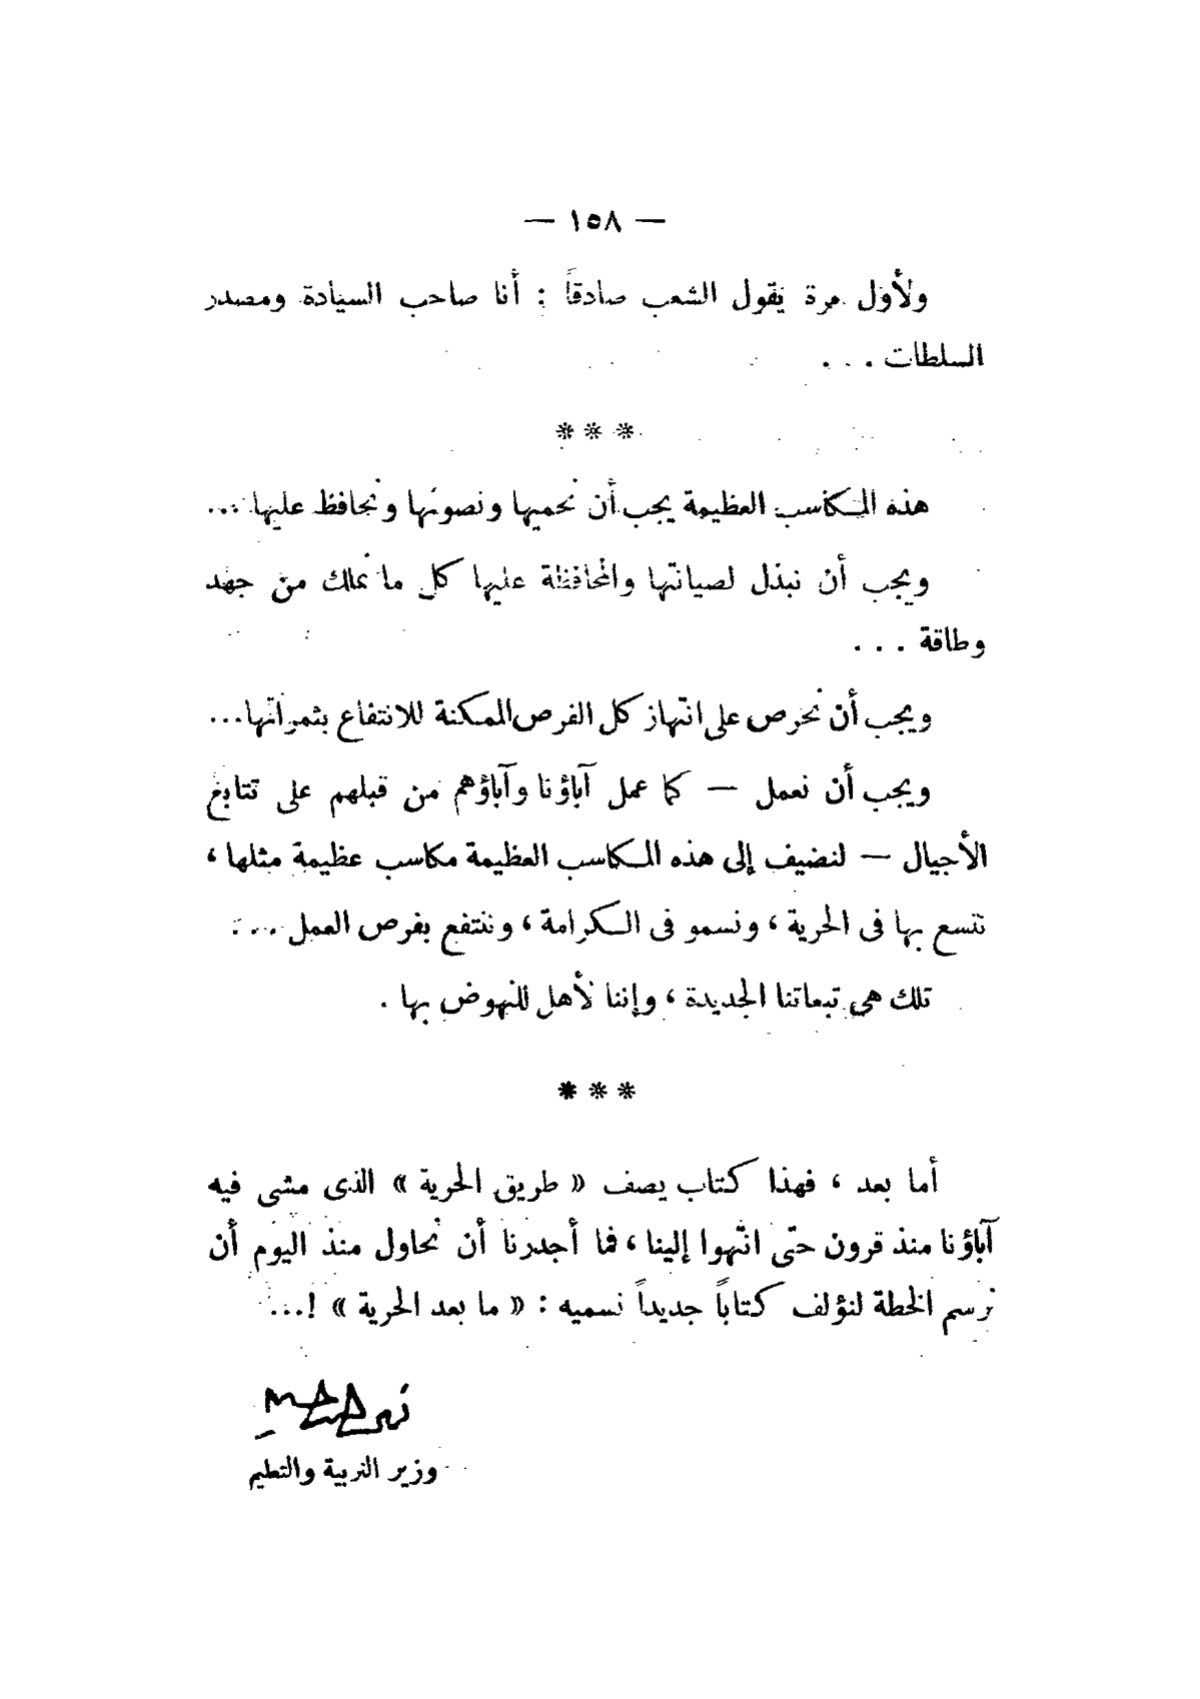 — ١٥٨ —
ولأول مرة يقول الشعب صادقاً : أنا صاحب السيادة ومصدر
السلطات . . .
* * *
هذه المكاسب العظيمة يجب أن نحميها ونصونها ونحافظ عليها ...
ويجب أن نبذل لصيانتها والمحافظة عليها كل ما نملك من جهد
وطاقة . . .
ويجب أن نحرص على انتهاز كل الفرص الممكنة للانتفاع بثمراتها...
ويجب أن نعمل — كما عمل آباؤنا وآباؤهم من قبلهم على تتابع
الأجيال — لنضيف إلى هذه المكاسب العظيمة مكاسب عظيمة مثلها ،
نتسع بها فى الحرية ، ونسمو فى الكرامة ، وننتفع بفرص العمل ...
تلك هى تبعاتنا الجديدة ، وإننا لأهل للنهوض بها .
* * *
أما بعد ، فهذا كتاب يصف « طريق الحرية » الذى مشى فيه
آباؤنا منذ قرون حتى انتهوا إلينا ، فما أجدرنا أن نحاول منذ اليوم أن
نرسم الخطة لنؤلف كتاباً جديداً نسميه : « ما بعد الحرية » !...
وزير التربية والتعليم